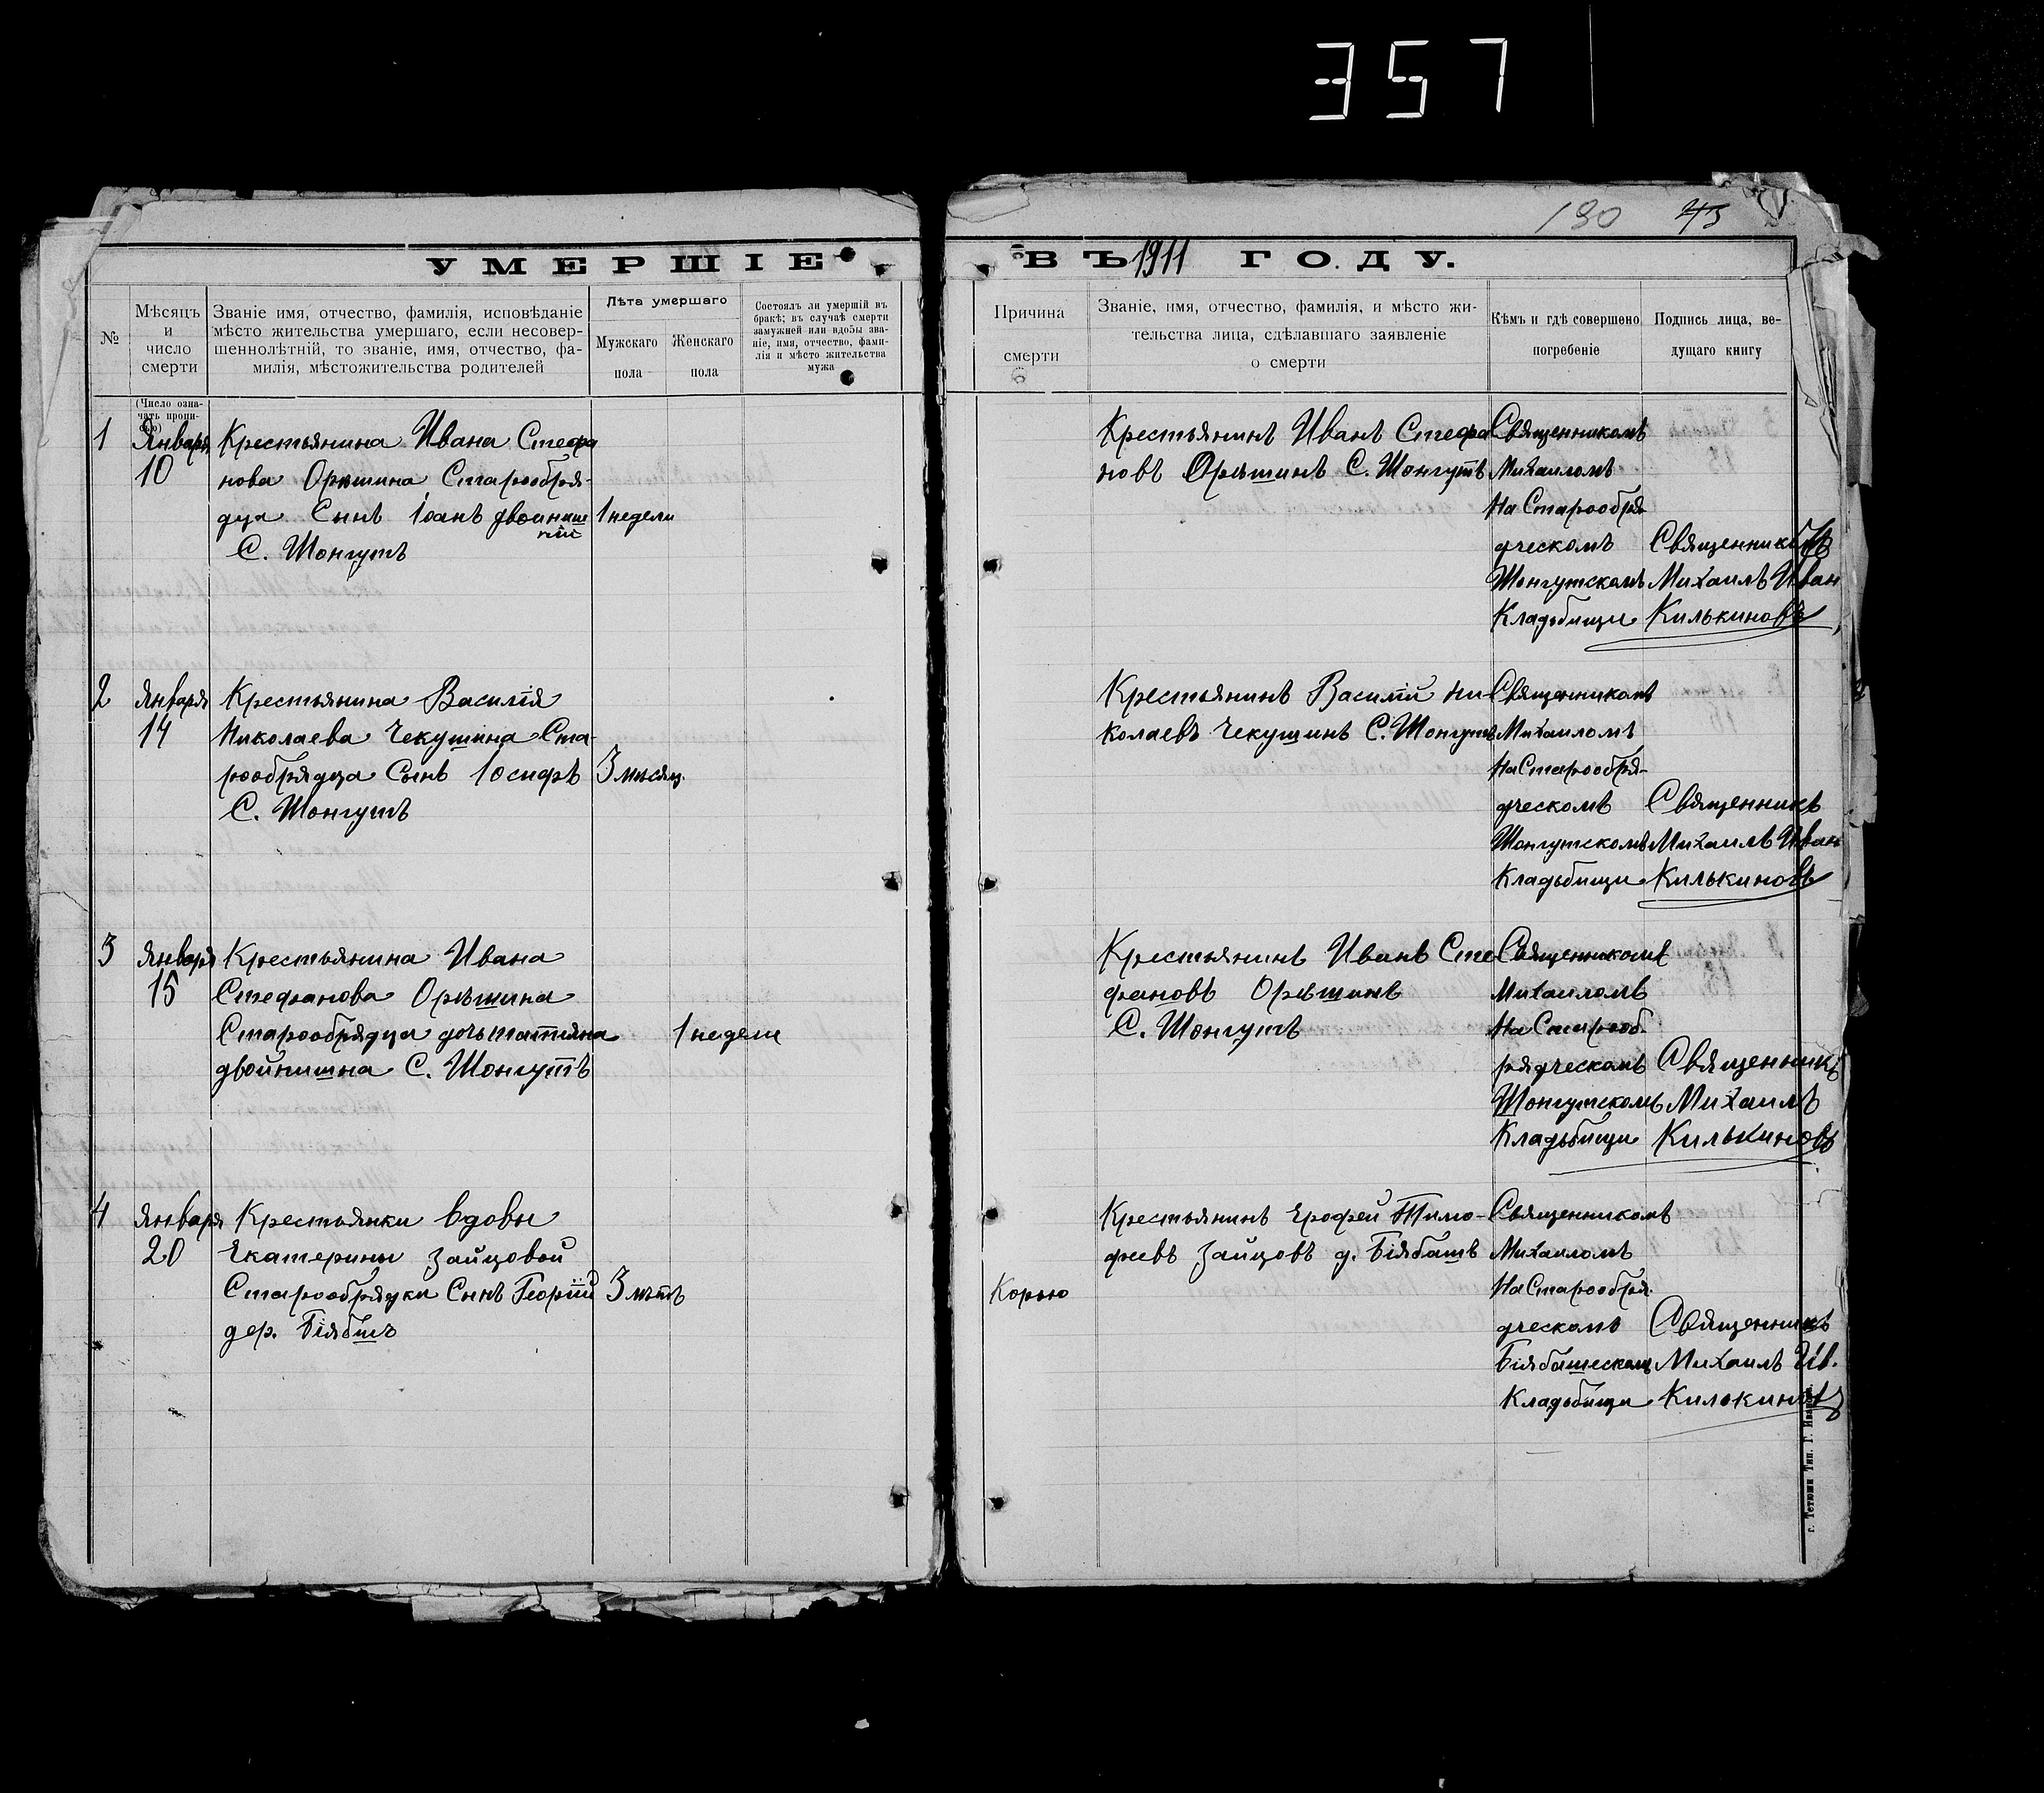 357
190 43
УМЕРШІЕ ВЪ 1911 ГОДУ.
№
Мѣсяцъ
и
число
смерти
(Число озна-
чать пропи-
сью)
Званіе имя, отчество, фамилія, исповѣданіе
мѣсто жительства умершаго, если несовер-
шеннолѣтній, то званіе, имя, отчество, фа-
милія, мѣстожительства родителей
Лѣта умершаго
Мужскаго
пола
Женскаго
пола
Состоялъ ли умершій въ
бракѣ; въ случаѣ смерти
замужней или вдовы зва-
ніе, имя, отчество, фами-
лія и мѣсто жительства
мужа
Причина
смерти
Званіе, имя, отчество, фамилія, и мѣсто жи-
тельства лица, сдѣлавшаго заявленіе
о смерти
Кѣмъ и гдѣ совершено
погребеніе
Подпись лица, ве-
дущаго книгу
1
Января
10
Крестьянина Ивана Стефа
нова Орѣшина Старообря-
дца Сынъ Іоанъ двоиниш
ній
С. Шонгутъ
1 недели
Крестьянинъ Иванъ Стефа
новъ Орѣшинъ С. Шонгутъ
Священникомъ
Михаиломъ
На Старообря
дческомъ
Шонгутскомъ
Кладьбищи
Священникъ
Михаилъ Иван
Килькиновъ
2
Января
14
Крестьянина Василія
Николаева Чекушина Ста-
рообрядца Сынъ Іосифъ
С. Шонгутъ
3 мѣсяц.
Крестьянинъ Василій Ни-
колаевъ Чекушинъ С. Шонгутъ
Священникомъ
Михаиломъ
На Старообря-
дческомъ
Шонгутскомъ
Кладьбищи
Священникъ
Михаилъ Иван
Килькиновъ
3
Января
15
Крестьянина Ивана
Стефанова Орѣшина
Старообрядца дочь Татіяна
двойнишна С. Шонгутъ
1 недели
Крестьянинъ Иванъ Сте
фановъ Орѣшинъ
С. Шонгутъ
Священникомъ
Михаиломъ
На Старооб.
рядческомъ
Шонгутскомъ
Кладьбищи
Священникъ
Михаилъ
Килькиновъ
4
Января
20
Крестьянки вдовы
Екатерины Зайцовой
Старообрядки Сынъ Георгій
дер. Біябашъ
3 лѣтъ
Корью
Крестьянинъ Ерофей Тимо-
феевъ Зайцовъ д. Біябашъ
Священникомъ
Михаиломъ
На Старообря.
дческомъ
Біябашескомъ
Кладьбищи
Священникъ
Михаилъ Ив.
Килькиновъ
г. Тетюши Тип. Г. Иванова.